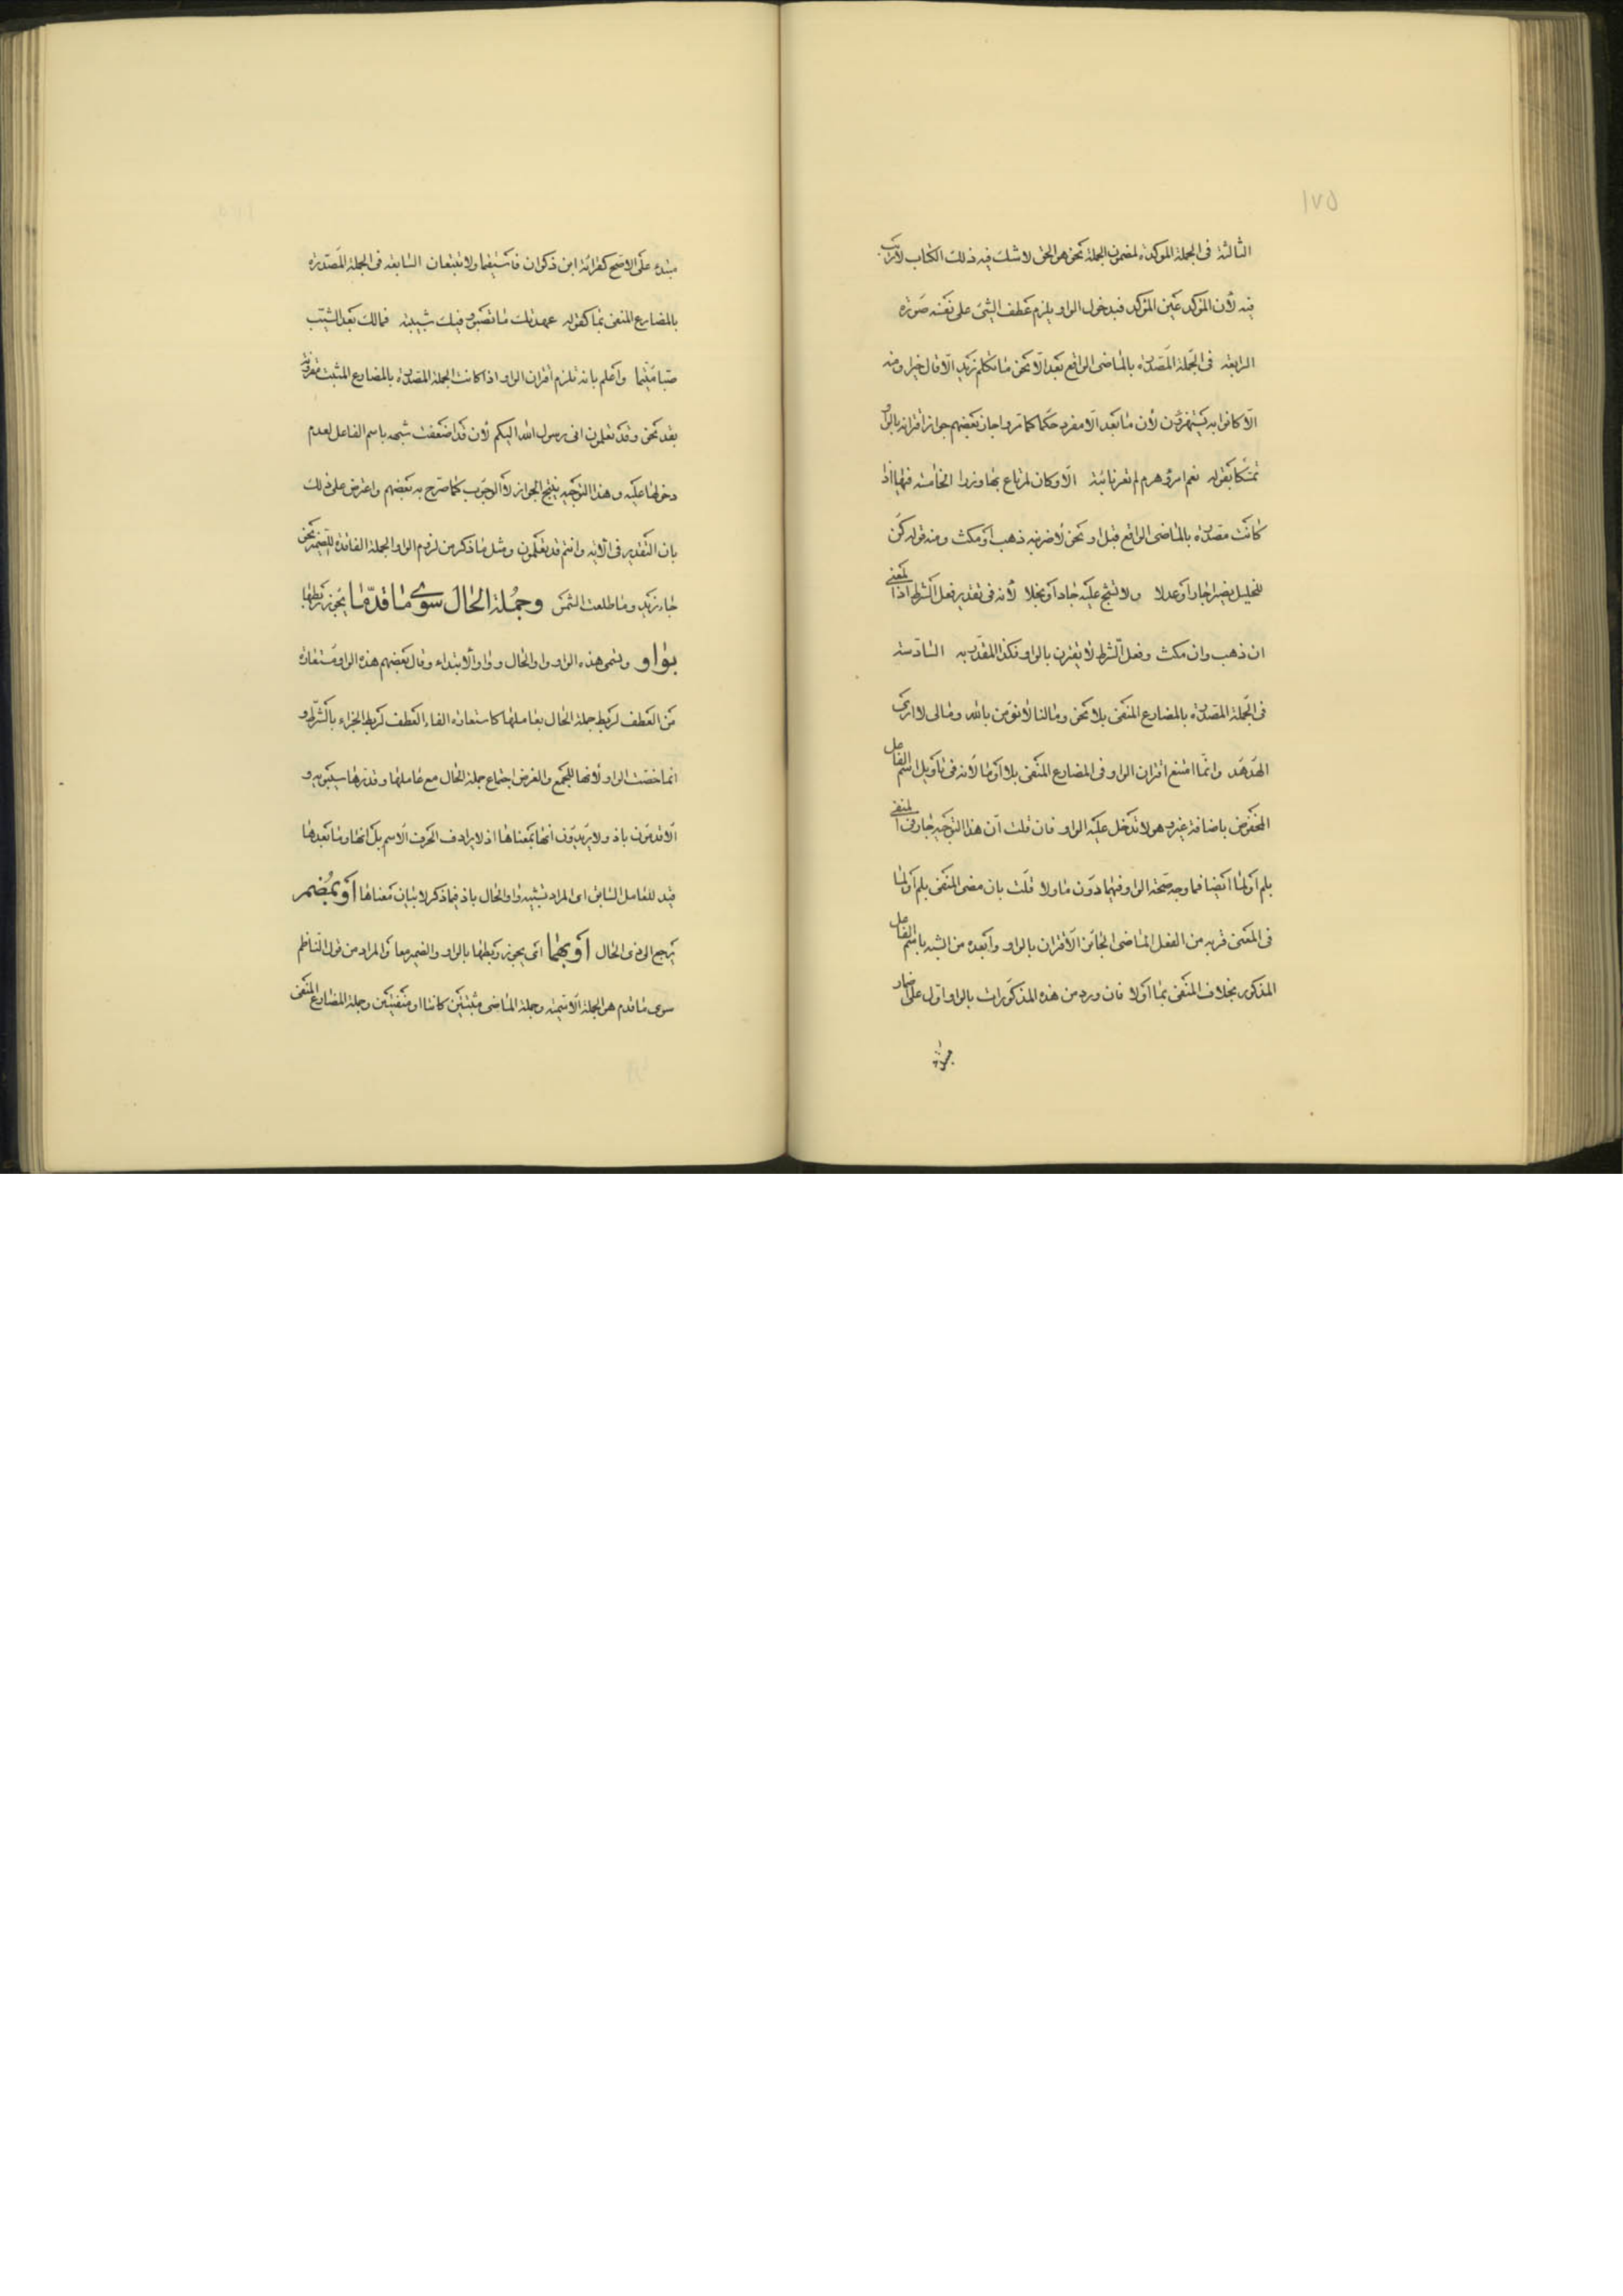 ١٧٥
الثالثة فى الجملة المؤكدة لمضمون الجملة نحو هو الحق لا شك فيه ذلك الكتاب لا ريب
فيه لأن المؤكد عين المؤكد فبدخول الواو يلزم عطف الشئ على نفسه صورة
الرابعة فى الجملة المصدرة بالماضى الواقع بعد الّا نحو ما تكلم زيد الّا قال خيرا ومنه
الّا كانوا به يستهزؤن لأن ما بعد الّا مفرد حكما كما مر واجاز بعضهم جواز اقترانه بالواو
تمسكا بقوله نعم امرؤ هرم لم تعر نائبة الّا وكان لمرتاع بها وزرا الخامسة فيها اذا
كانت مصدرة بالماضى الواقع قبل او نحو لأضربنه ذهب أو مكث ومنه قوله كن
للخليل نصيرا جار أو عدلا ولا تشح عليه جاد أو بخلا لأنه فى تقدير فعل الشرط اذ المعنى
ان ذهب وان مكث وفعل الشرط لا يقترن بالواو فكذا المقدر به السادسة
فى الجملة المصدرة بالمضارع المنفى بلا نحو وما لنا لا نؤمن بالله وما لى لا ارى
الهدهد وانما امتنع اقتران الواو فى المضارع المنفى بلا أو ما لأنه فى تأويل اسم الفاعل
المخفوض باضافة غير وهو لا تدخل عليه الواو فان قلت أن هذا التوجيه جار فى المنفى
بلم أو لما أيضا فما وجه صحة الواو فيهما دون ما ولا قلت بان مضى المنفى بلم أو لما
فى المعنى قربه من الفعل الماضى الجائز الأقتران بالواو وأبعده من الشبه باسم الفاعل
المذكور بخلاف المنفى بما أو لا فان ورد من هذه المذكورات بالواو اول على اضمار
مبتدء
مبتدء على الأصح كقرائة ابن ذكوان فاستقيما ولا تتبعان السابعة فى الجملة المصدرة
بالمضارع المنفى بما كقوله عهدتك ما تصبو وفيك شبيبة فما لك بعد الشيب
صبا متيما وأعلم بانه تلزم اقتران الواو اذا كانت الجملة المصدرة بالمضارع المثبت مقرونة
بقد نحو وقد تعلمون انى رسول الله اليكم لأن قد اضعفت شبهه باسم الفاعل لعدم
دخولها عليه وهذا التوجيه ينتج الجواز لا الوجوب كما صرح به بعضهم واعترض على ذلك
بان التقدير فى الآية وانتم قد تعلمون ومثل ما ذكر من لزوم الواو الجملة الفاقدة للضمير نحو
جاء زيد وما طلعت الشمس وجملة الحال سوى ما قدّما يجوز ربطها
بواو وتسمى هذه الواو واو الحال وواو الأبتداء وقال بعضهم هذه الواو مستعارة
من العطف لربط جملة الحال بعاملها كاستعارة الفاء العطف لربط الجزاء بالشرط و
انما خصّت الواو لأنها للجمع والغرض اجتماع جملة الحال مع عاملها وقدرها سيبويه و
الأقدمون باذ ولا يريدون انها بمعناها اذ لا يرادف الحرف الأسم بل انها وما بعدها
قيد للعامل السابق اى المراد تشبيه واو الحال باذ فيما ذكر لا بيان معناها أو بمضمر
يرجع الى ذى الحال أو بهما أى يجوز ربطها بالواو والضمير معا والمراد من قول الناظم
سوى ما قدم هو الجملة الأسمية وجملة الماضى مثبتتين كانتا او منفيتين وجملة المضارع المنفى